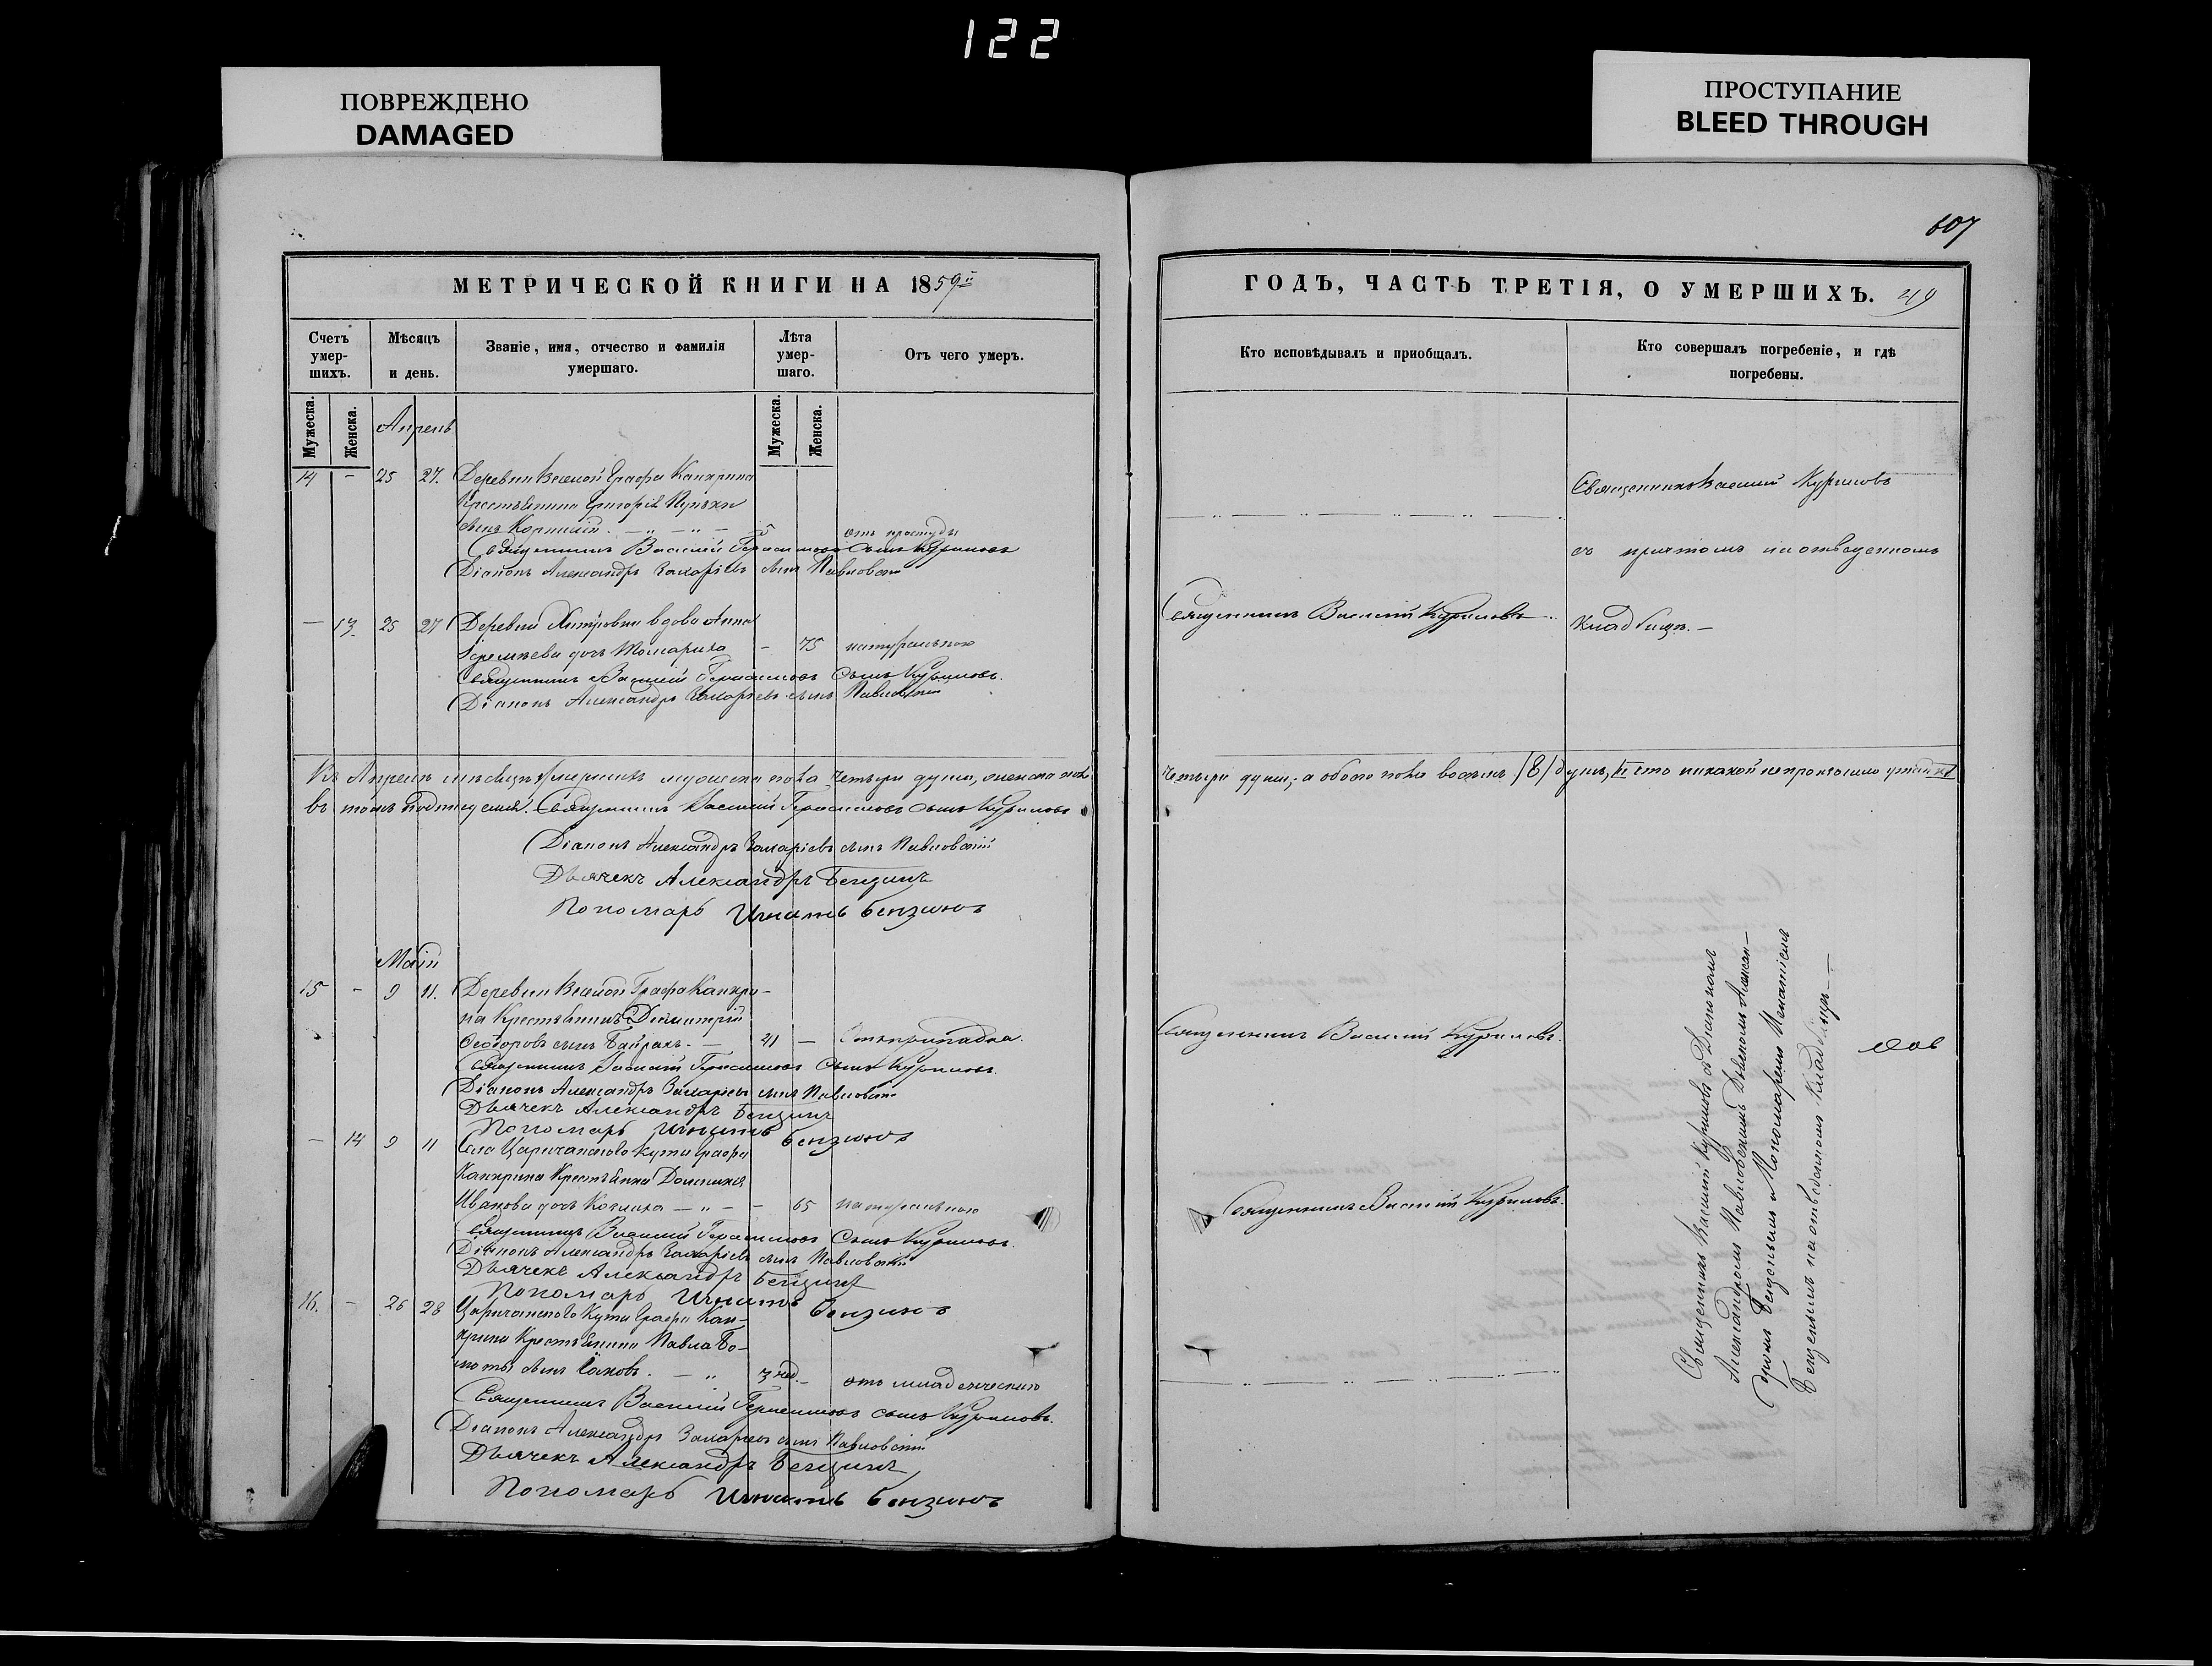 122
ПОВРЕЖДЕНО
DAMAGED
ПРОСТУПАНИЕ
BLEED THROUGH
607
МЕТРИЧЕСКОЙ КНИГИ НА 1859й
Счетъ умер-шихъ.
Мѣсяцъ и день.
Званіе, имя, отчество и фамилія умершаго.
Лѣта умер-шаго.
Отъ чего умеръ.
Мужеска.
Женска.
Мужеска.
Женска.
Апрель
14 - 25 27. Деревни Веселой Графа Канкрина
Крестьянина Григорія
сынъ
отъ простуды
Священникъ Василій Герасимовъ сынъ Куриловъ
Діаконъ Александръ Захаріевъ сынъ Павловскій
— 13. 25 27 Деревни вдова Анна
дочь — 75 натурально
Священникъ Василій Герасимовъ Сынъ Куриловъ.
Діаконъ Александръ Захаріевъ сынъ Павловскій
Въ Апрелѣ мѣсяцѣ умершихъ мужеска пола четыри души, женска пола
въ томъ подписуемся. Священникъ Василій Герасимовъ сынъ Куриловъ
Діаконъ Александръ Захаріевъ сынъ Павловскій
Дьячекъ Александръ Бензинъ
Пономарь Игнатъ Бензинъ
Май
15 - 9 11. Деревни Веселой Графа Канкри-
на Крестьянинъ Димитрій
Феодоровъ сынъ Байракъ. — 41 — Отъ припадка.
Священникъ Василій Герасимовъ Сынъ Куриловъ.
Діаконъ Александръ Захаріевъ сынъ Павловскій
Дьячекъ Александръ Бензинъ
Пономарь Игнатъ Бензинъ
— 14 9 11 Села Царичанскаго Кута Графа
Канкрина Крестьянка Домникія
Иванова дочь — „ — — 65 натурально
Священникъ Василій Герасимовъ Сынъ Куриловъ.
Діаконъ Александръ Захаріевъ сынъ Павловскій
Дьячекъ Александръ Бензинъ
Пономарь Игнатъ Бензинъ
16. - 26 28 Царичанскаго Кута Графа Кан-
крина Крестьянина Павла
сынъ Іаковъ. — „ 3 нед. — отъ младенческаго
Священникъ Василій Герасимовъ сынъ Куриловъ.
Діаконъ Александръ Захаріевъ сынъ Павловскій
Дьячекъ Александръ Бензинъ
Пономарь Игнатъ Бензинъ
ГОДЪ, ЧАСТЬ ТРЕТІЯ, О УМЕРШИХЪ. 49
Кто исповѣдывалъ и приобщалъ.
Кто совершалъ погребеніе, и гдѣ погребены.
Священникъ Василій Куриловъ
съ причтомъ на отведенномъ
Священникъ Василій Куриловъ
кладбищѣ. —
четыри души, а обоего пола восемь /8/ душъ, и что никакой не
Священникъ Василій Куриловъ.
Священникъ Василій Куриловъ.
Священникъ Василій Куриловъ съ Діакономъ
Александромъ Павловскимъ Дьячкомъ Алексан-
дромъ Бензинымъ и Пономаремъ Игнатіемъ
Бензинымъ на отведенномъ кладбищѣ —